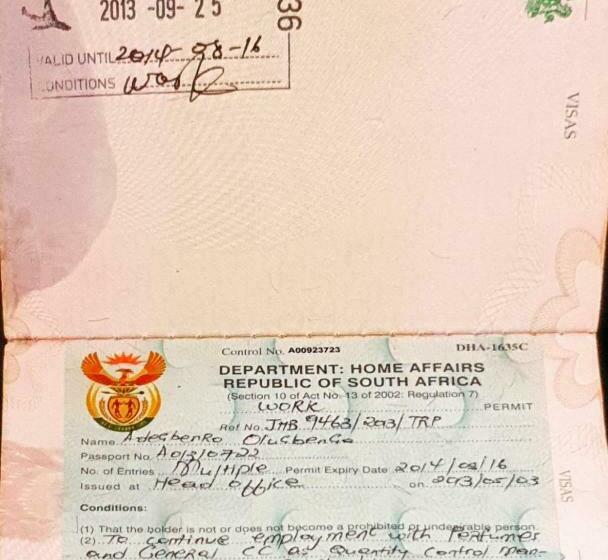 2013 -09- 25
36
VALID UNTIL 2014-08-16
CONDITIONS Work
VISAS
Control No. A00923723 DHA-1635C
DEPARTMENT: HOME AFFAIRS
REPUBLIC OF SOUTH AFRICA
(Section 10 of Act No. 13 of 2002: Regulation 7)
WORK PERMIT
Ref No. JHB 9463/2013/TRP
Name Adegbenro Olugbenga
Passport No. A03/0722
No. of Entries Multiple Permit Expiry Date 2014/08/16
Issued at Head office on 2013/05/03
VISAS
Conditions:
(1) That the holder is not or does not become a prohibited or undesirable person.
(2) To continue employment with Perfumes
and General CC as Quantity Control Man